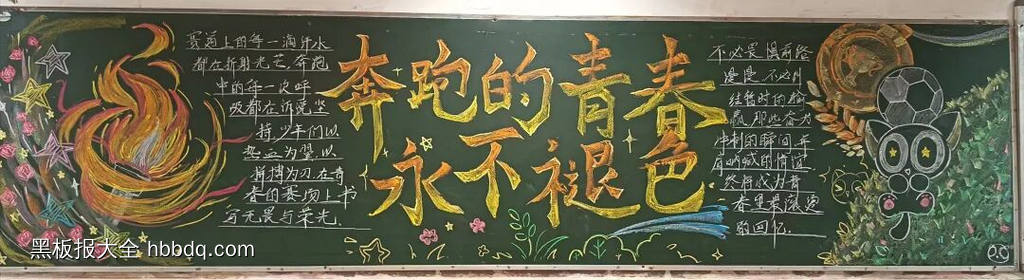 赛道上的每一滴汗水
都在折射光芒,奔跑
中的每一次呼
吸都在诉说坚
持,少年们以
热血为翼以
拼搏为刃,在青
春的赛场上书
写无畏与荣光
奔跑的青春
永不褪色
不必畏惧前路
漫漫,不必纠
结暂时的输
赢,那些奋力
冲刺的瞬间,并
肩呐喊的情谊
终将成为青
春里最滚烫
的回忆
黑板报大全 hbbdq.com